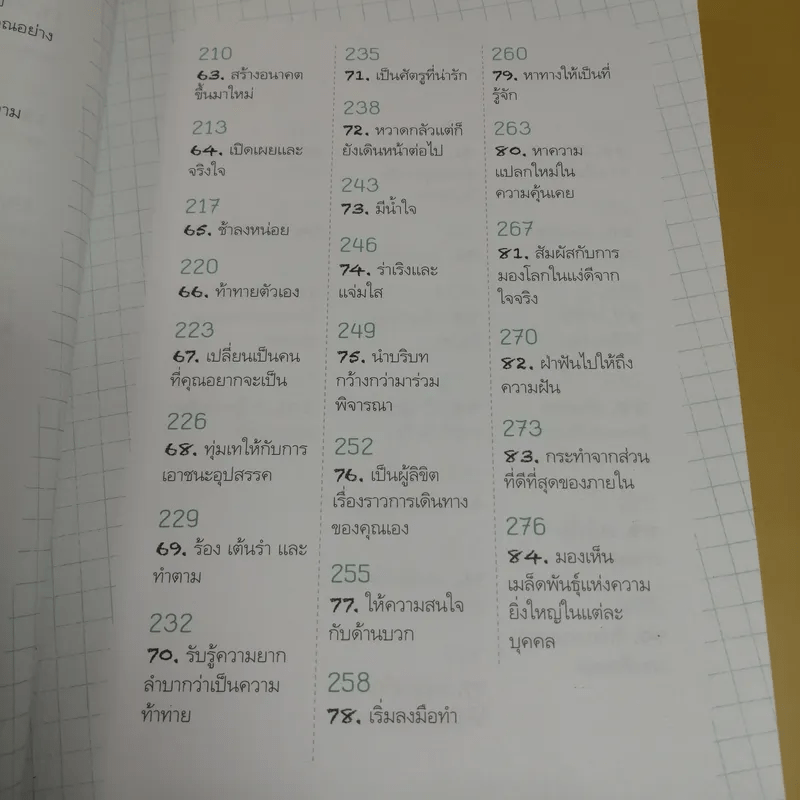 ณอย่าง
าม
210
63. สร้างอนาคต
ขึ้นมาใหม่
213
64. เปิดเผยและ
จริงใจ
217
65. ช้าลงหน่อย
220
66. ท้าทายตัวเอง
223
67. เปลี่ยนเป็นคน
ที่คุณอยากจะเป็น
226
68. ทุ่มเทให้กับการ
เอาชนะอุปสรรค
229
69. ร้อง เต้นรำ และ
ทำตาม
232
70. รับรู้ความยาก
ลำบากว่าเป็นความ
ท้าทาย
235
71. เป็นศัตรูที่น่ารัก
238
72. หวาดกลัวแต่ก็
ยังเดินหน้าต่อไป
243
73. มีน้ำใจ
246
74. ร่าเริงและ
แจ่มใส
249
75. นำบริบท
กว้างกว่ามาร่วม
พิจารณา
252
76. เป็นผู้ลิขิต
เรื่องราวการเดินทาง
ของคุณเอง
255
77. ให้ความสนใจ
กับด้านบวก
258
78. เริ่มลงมือทำ
260
79. หาทางให้เป็นที่
รู้จัก
263
80. หาความ
แปลกใหม่ใน
ความคุ้นเคย
267
81. สัมผัสกับการ
มองโลกในแง่ดีจาก
ใจจริง
270
82. ฝ่าฟันไปให้ถึง
ความฝัน
273
83. กระทำจากส่วน
ที่ดีที่สุดของภายใน
276
84. มองเห็น
เมล็ดพันธุ์แห่งความ
ยิ่งใหญ่ในแต่ละ
บุคคล